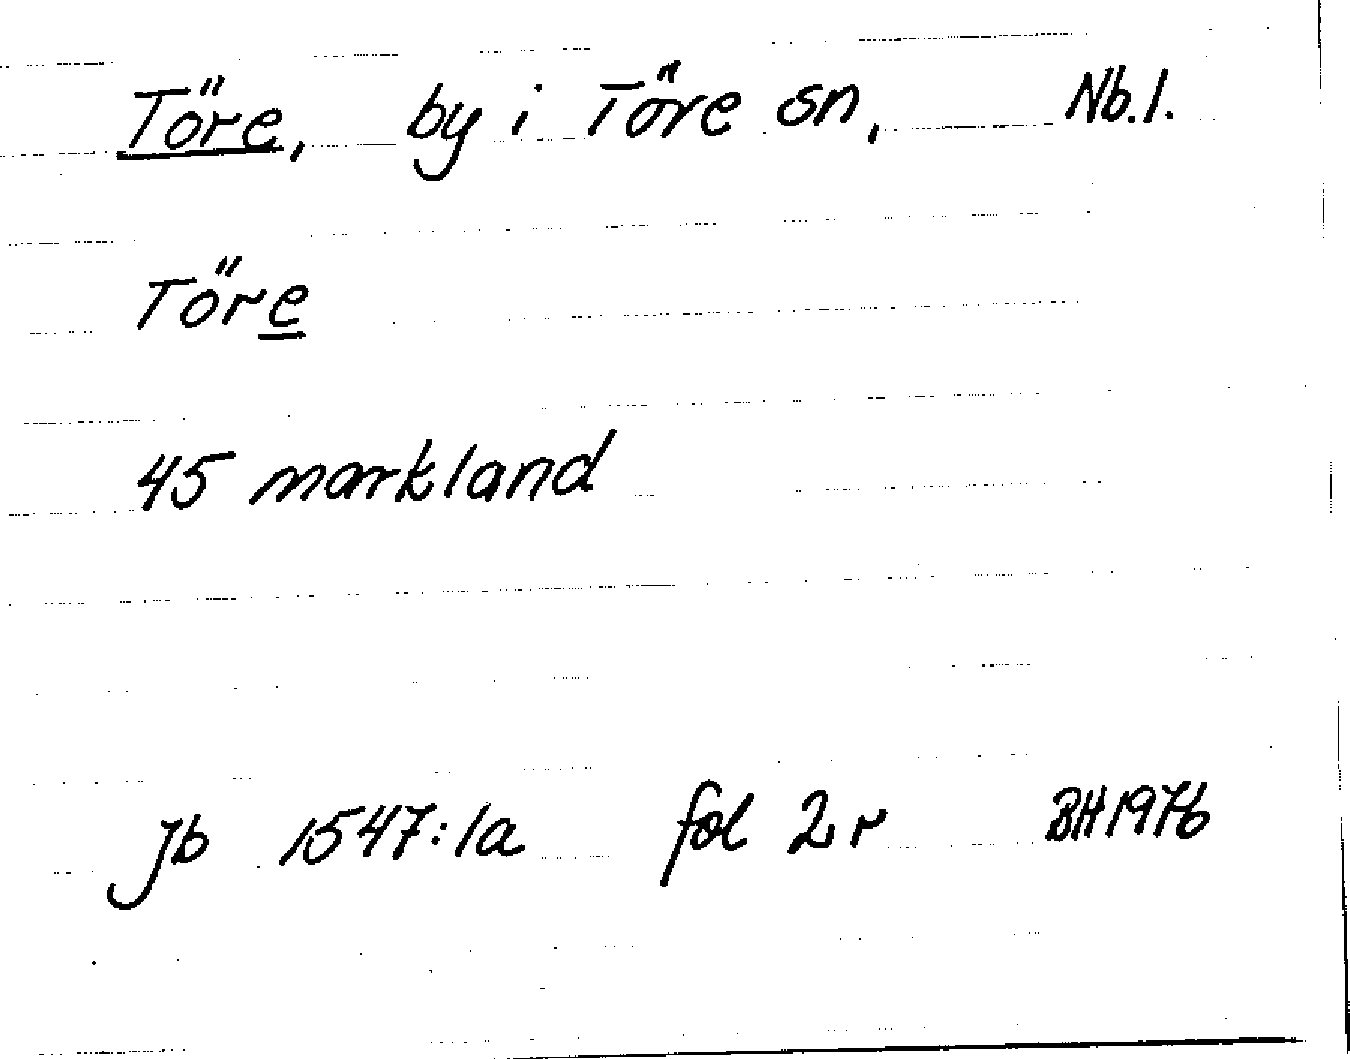 Töre, by i Töre sn, Nb.l.
Töre
45 markland
Jb 1547:1a fol 2r BH1976